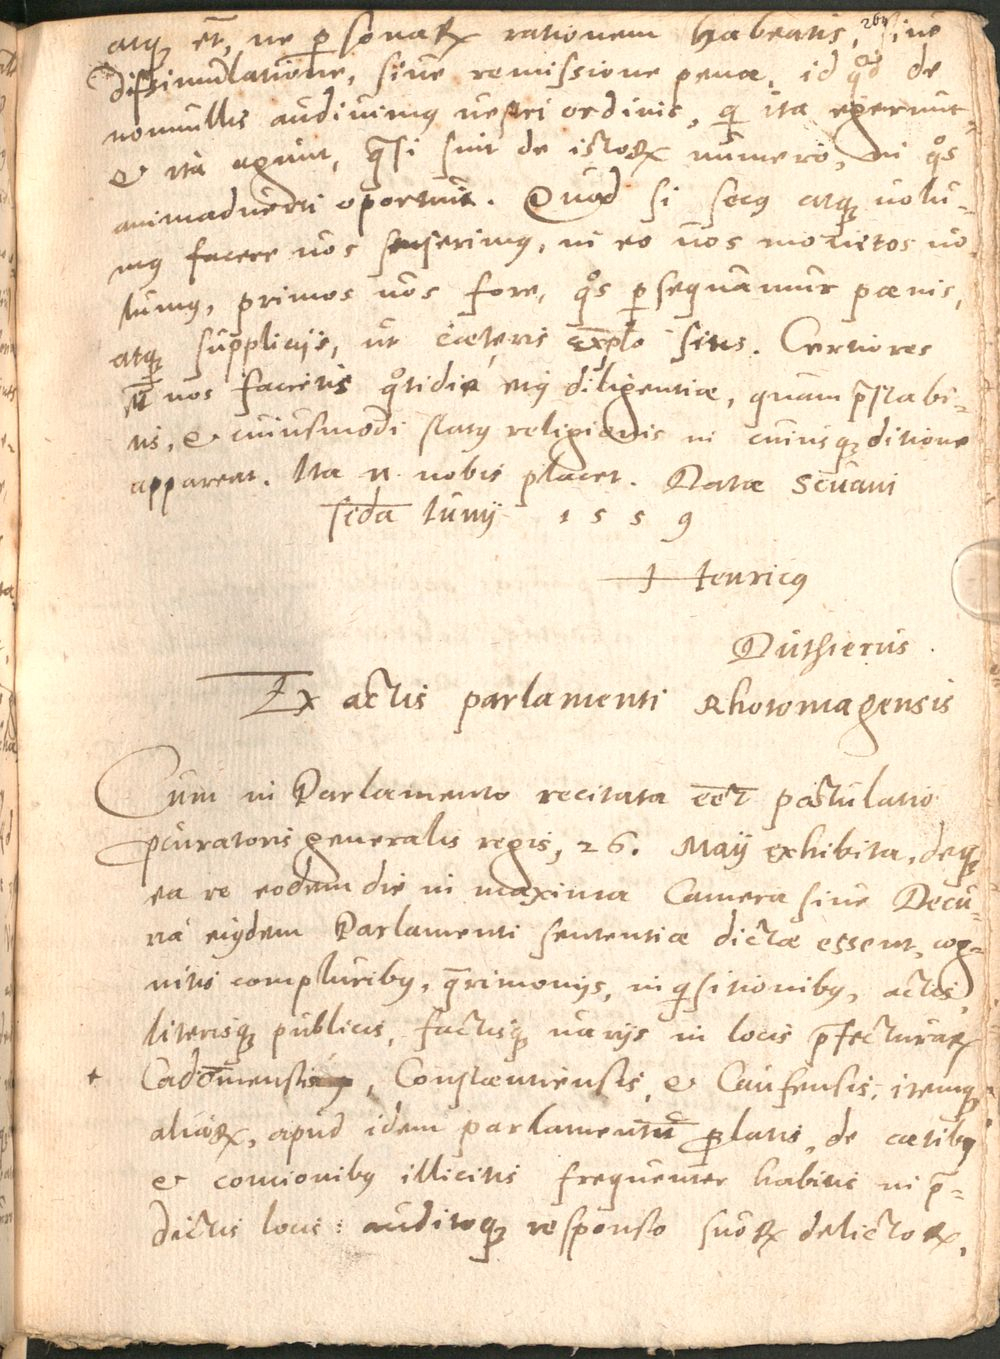 264
atq; et, ne personarꝝ rationem habeatis, sive
dissimulatione, sive remissione penæ, id qđ de
nonnullis audivimus vestri ordinis, qi ita egerunt,
& ita agunt, q̄si sint de istorꝝ numero, in qos
animadverti oportuit. Quod si secus atq; volu-
mus facere vos senserimus, in eo vos monitos vo
lumus, primos vos fore, qos persequamur pœnis,
atq; supplicijs, ut cæteris exp̄lo sitis. Certiores
nos facietis qotidie eius diligentiæ, quam p̄stabi-
tis, & cuiusmodi status religionis in cuiusq; ditione
appareat. Ita n. nobis placet. Datæ Scuani
scđa Iunij 1559
Henricus
Duthierus.
Ex actis parlamenti Rhotomagensis
Cum in Parlamento recitata eēt postulatio
procuratoris generalis regis, 26. Maij exhibita, deq;
ea re eodem die in maxima Camera sive Decu-
ria eiusdem Parlamenti sententiæ dictæ essent, cog-
nitis compluribus, q̄rimonijs, inqisitionibus, actis,
literisq; publicis, factisq; varijs in locis p̄fecturarꝝ
+ Cadomensis, Constantiensis, & Caufensis, itemq;
aliarꝝ, apud idem parlamentū prolatis, de cœtibus
& concionibus illicitis frequenter habitis in p̄-
dictis locis: auditoq; responso suorꝝ delictorꝝ,